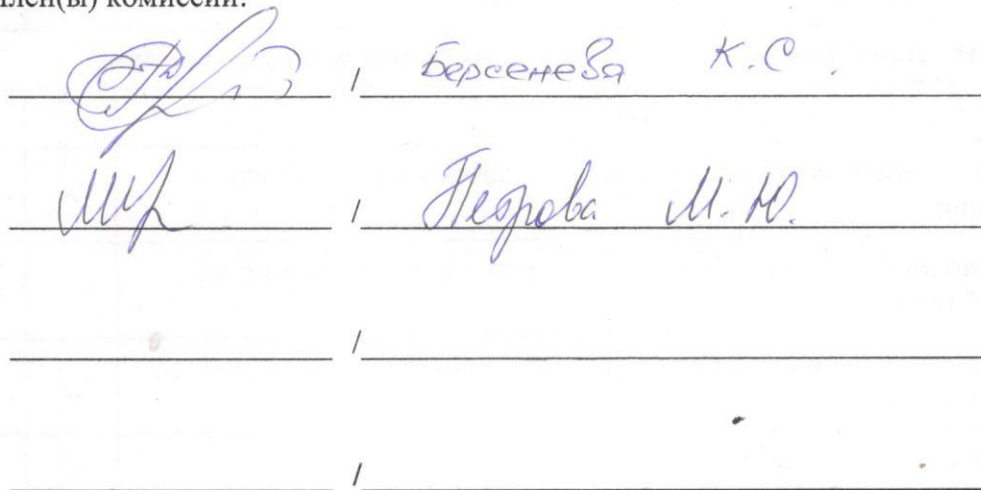 член(ы) комиссии:
/ Берсенева К.С.
/ Петрова М.Ю.
/
/